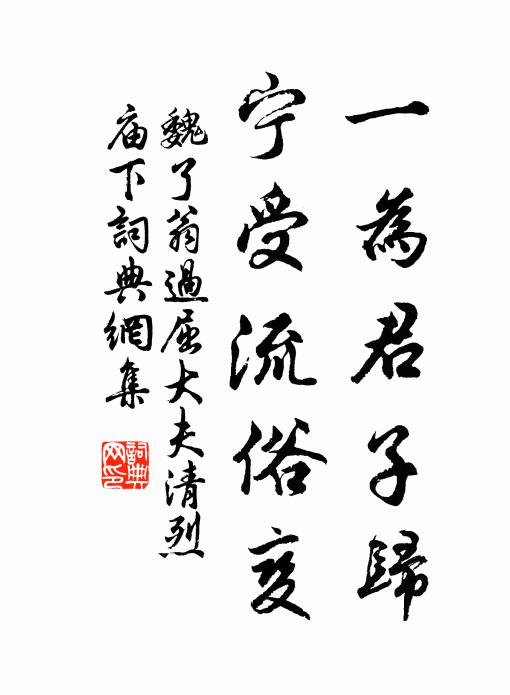 一為君子歸
宁受流俗变
魏了翁過屈大夫清烈
庙下詞典網集
詞典网印